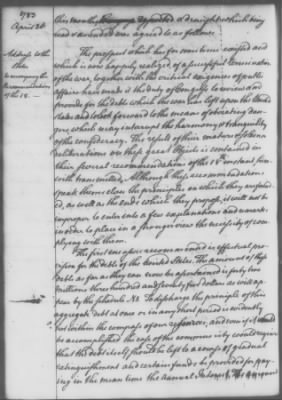 1783
April 26
this month,
a draught which being
read & amended was agreed to as follows:
Address to the
States
accompanying the
Recommendations
of the 18.
The prospect which has for some time existed and
which is now happily realized of a successful termination
of the war, together with the critical exigencies of public
affairs have made it the duty of Congress to review and
provide for the debts which the war has left upon the United
States and to look forward to the means of obviating dan-
gers, which may interrupt the harmony & tranquility
of the confederacy. The result of their mature & solemn
deliberations on these great objects is contained in
their several recommendations of the 18th instant here
with transmitted. Although these recommendations
speak themselves the principles on which they are found
ed, as well as the ends which they propose, it will not be
improper to enter into a few explanations and remarks
in order to place in a stronger view the necessity of com
plying with them.
The first measure recommended is effectual pro
vision for the debts of the United States. The amount of these
debts as far as they can now be ascertained is forty two
millions three hundred and seventy five dollars as will ap
pear by the schedule No. 1. To discharge the principle of this
aggregate debt at once or in any short period is evidently
not within the compass of our resources, and even if it could
be accomplished the ease of the community would require
that the debt itself should be left to a course of gradual
extinguishment and certain funds be provided for pay
ing in the mean time the annual Interest. The